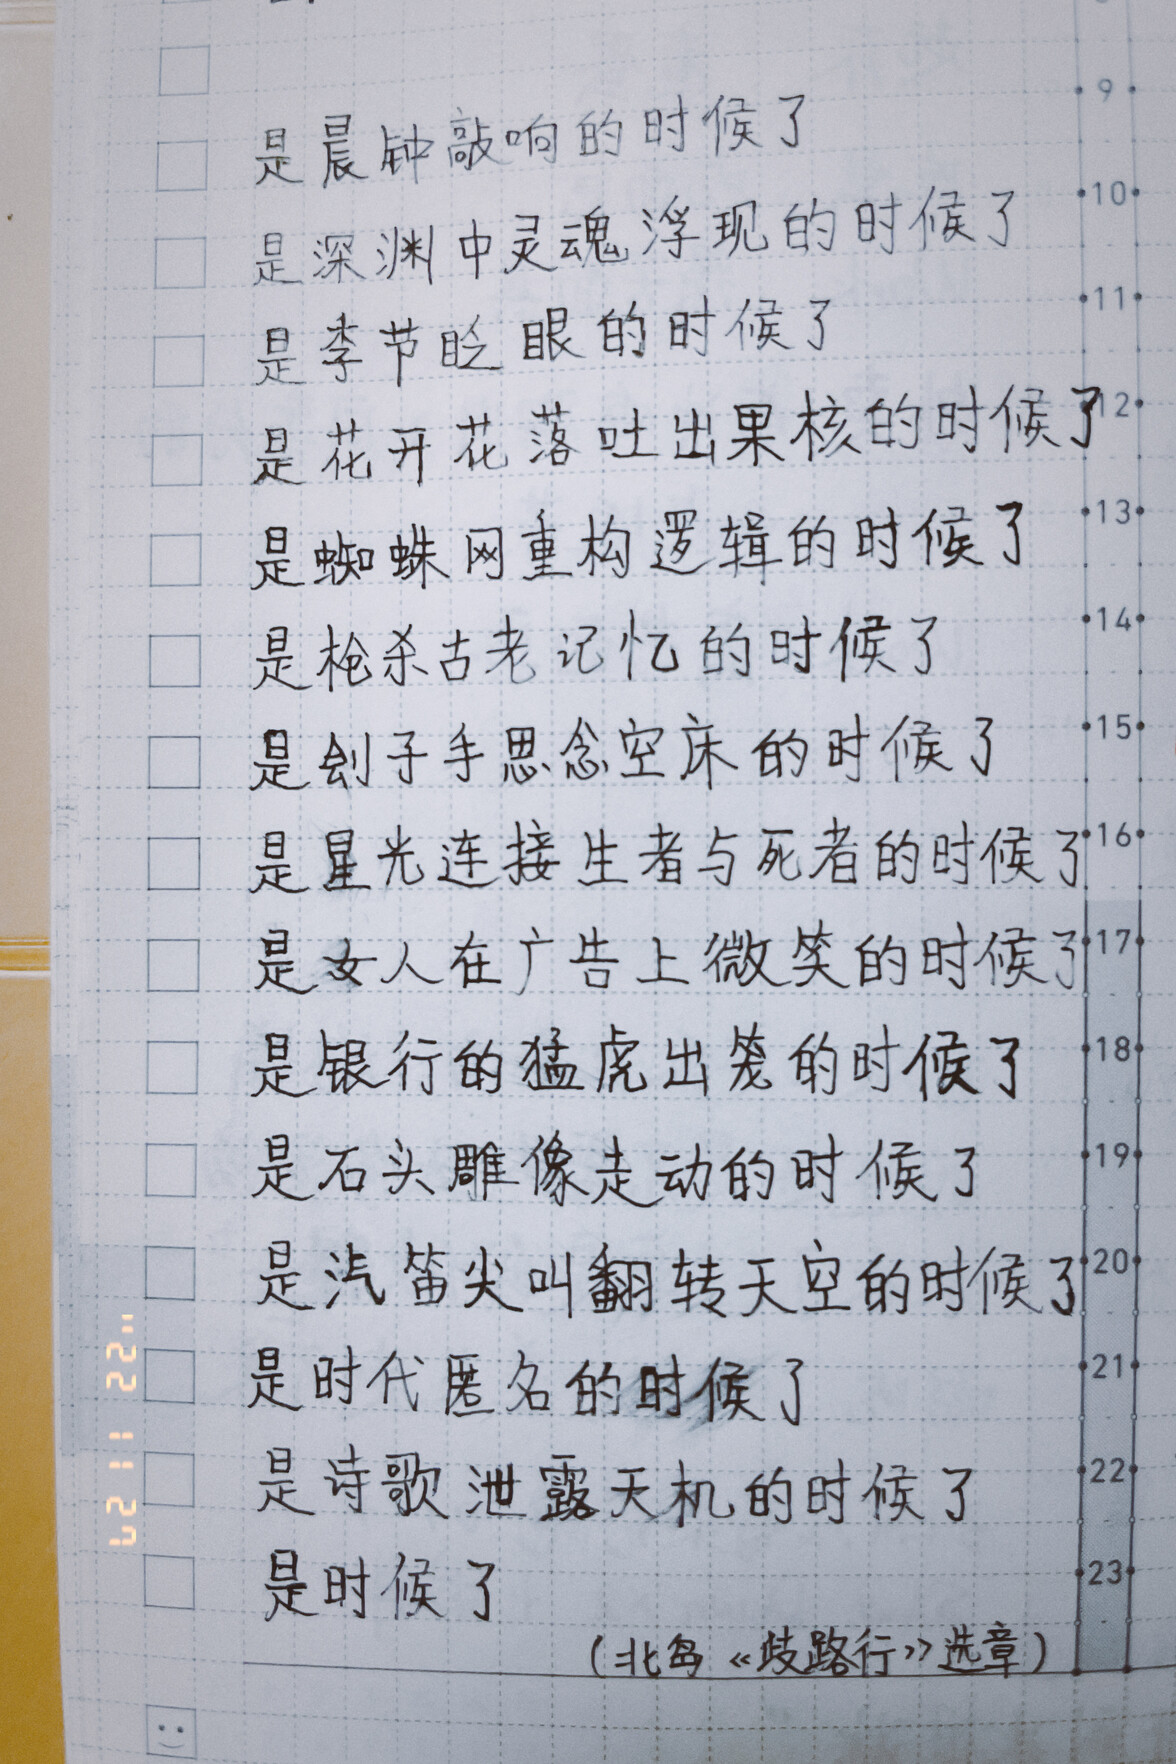 9
是晨钟敲响的时候了
10
是深渊中灵魂浮现的时候了
11
是季节眨眼的时候了
12
是花开花落吐出果核的时候了
13
是蜘蛛网重构逻辑的时候了
14
是枪杀古老记忆的时候了
15
是刽子手思念空床的时候了
16
是星光连接生者与死者的时候了
17
是女人在广告上微笑的时候了
18
是银行的猛虎出笼的时候了
19
是石头雕像走动的时候了
20
是汽笛尖叫翻转天空的时候了
21
是时代匿名的时候了
22
是诗歌泄露天机的时候了
23
是时候了
(北岛《歧路行》选章)